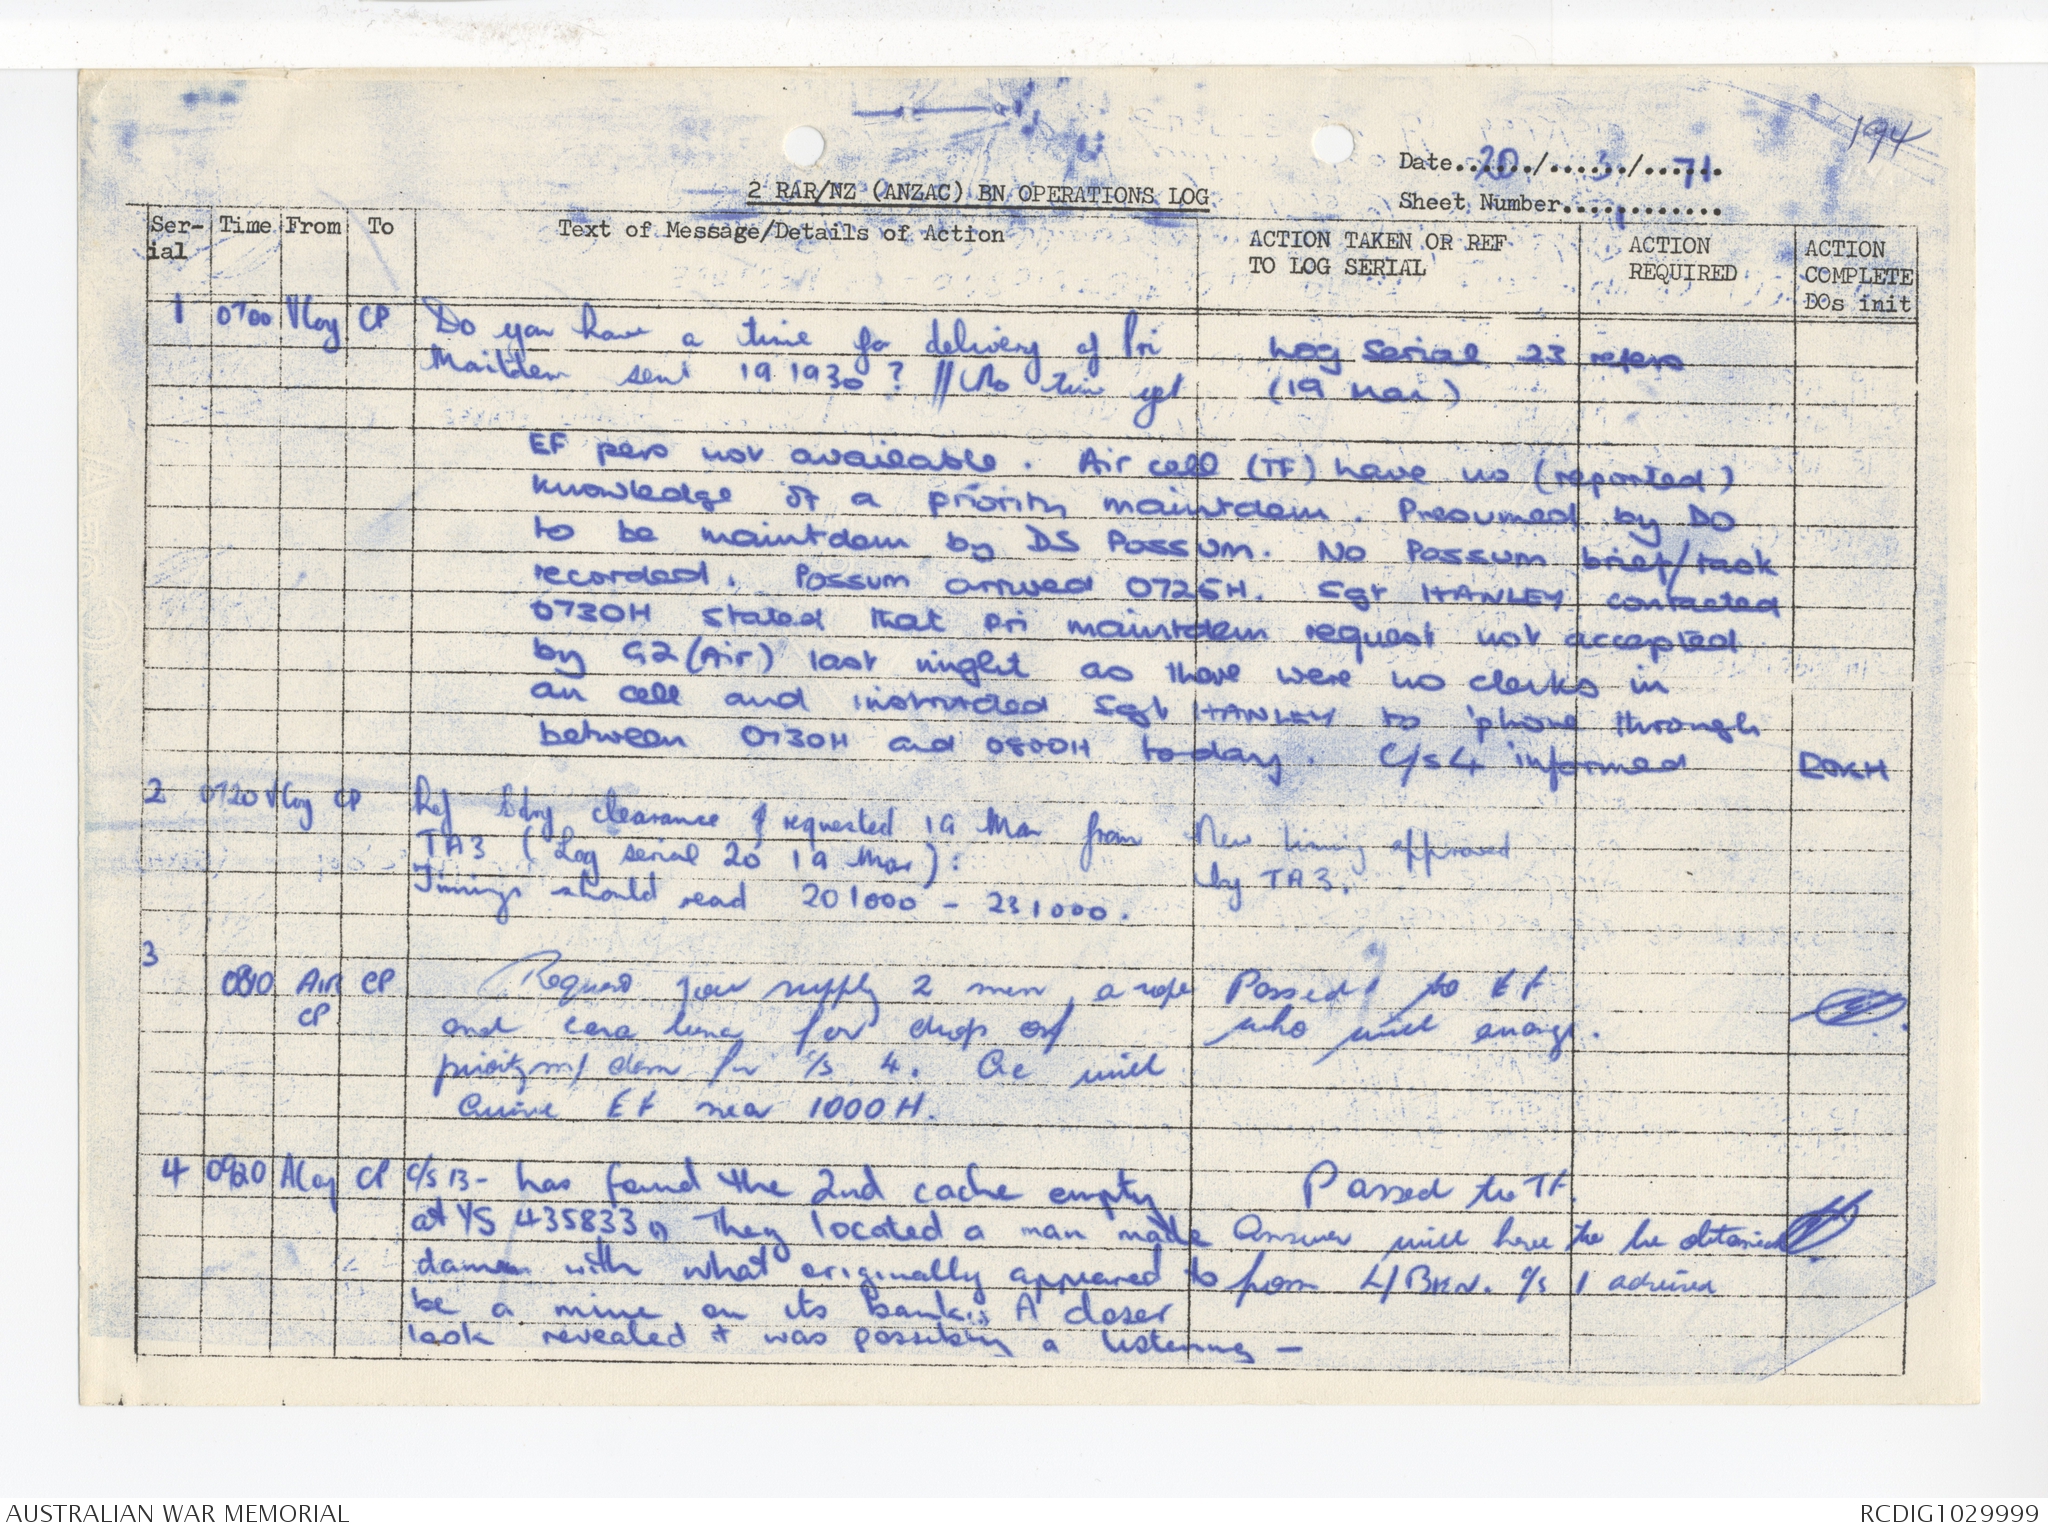 194
Date 20/3/71
2 RAR/NZ (ANZAC) BN OPERATIONS LOG
Sheet Number 1
Ser-ial Time From To Text of Message/Details of Action ACTION TAKEN OR REF TO LOG SERIAL ACTION REQUIRED ACTION COMPLETE DOs init
1 0700 VCoy CP Do you have a time for delivery of Pri Log Serial 23 refers
Maintdem sent 191930? // No time yet (19 Mar)
EF pers not available. Air cell (TF) have no (reported)
knowledge of a priority maintdem. Presumed by DO
to be maintdem by DS Possum. No Possum brief/task
recorded. Possum arrived 0725H. Sgt HANLEY contacted
0730H stated that pri maintdem request not accepted
by G2(Air) last night as there were no clerks in
air cell and instructed Sgt HANLEY to 'phone through
between 0730H and 0800H to-day. C/s 4 informed
2 0720 VCoy CP Ref bdry clearance requested 19 Mar from New timing approved
TA3 (Log serial 20 19 Mar): by TA3.
Timings should read 201000 - 231000.
3
0810 AIR CP Request you supply 2 men, a rope Passed to EF
CP and for drop of who will arrange.
priority m/dem for c/s 4. Ac will
arrive EF near 1000H.
4 0920 ACoy CP C/s 13- has found the 2nd cache empty Passed to TF.
at YS 435833 They located a man made Answer will have to be obtained
dam with what originally appeared to from c/s 1 advised
be a mine on its bank. A closer
look revealed it was possibly a listening -
AUSTRALIAN WAR MEMORIAL
RCDIG1029999